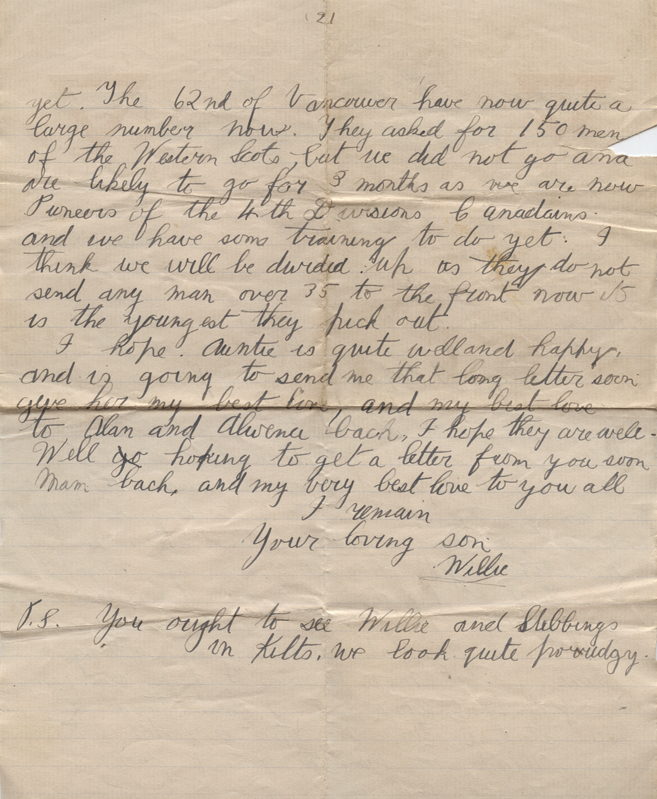 (2)
yet. The 62nd of Vancouver have now quite a
large number now. They asked for 150 men
of the Western Scots, but we did not go and
are likely to go for 3 months as we are now
Pioneers of the 4th Divisions Canadains.
and we have soms training to do yet. I
think we will be divided up as they do not
send any man over 35 to the front now
is the youngest they pick out.
I hope. Auntie is quite well and happy,
and is going to send me that long letter soon
give her my best love, and my best love
to Alan and Alwena bach, I hope they are well.
Well go hoping to get a letter from you soon
Mam bach, and my very best love to you all
I remain
Your loving son
Willie
P.S. You ought to see Willie and Stebbings
in Kilts, we look quite